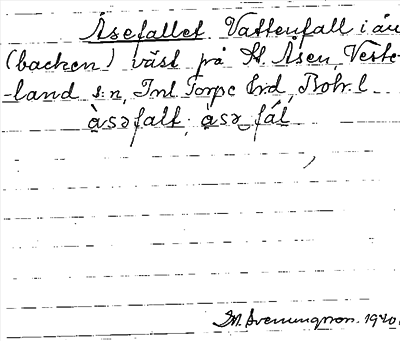 Åsefallet Vattenfall i åu
(backen) väst på St. Åsen, Väste-
-land s:n, Inl Torpe hrd, Boh. l
åsəfalt; åsə fál
M. Svenungsson. 1940.